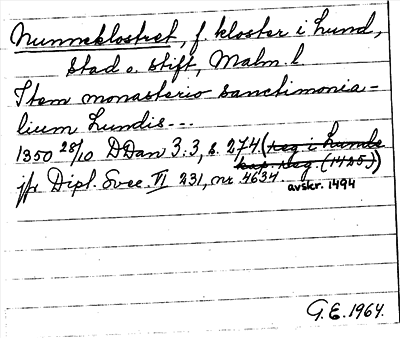 Nunneklostret, f. kloster i Lund,
stad o. stift, Malm. l
Item monasterio sanctimonia-
lium Lundis---
1350 28/10 DDan 3:3, s. 274 (reg i Lunds
kap. reg. (1425))
jfr Dipl. Svec. VI 231, nr 4634. avskr. 1494
G.E. 1964.